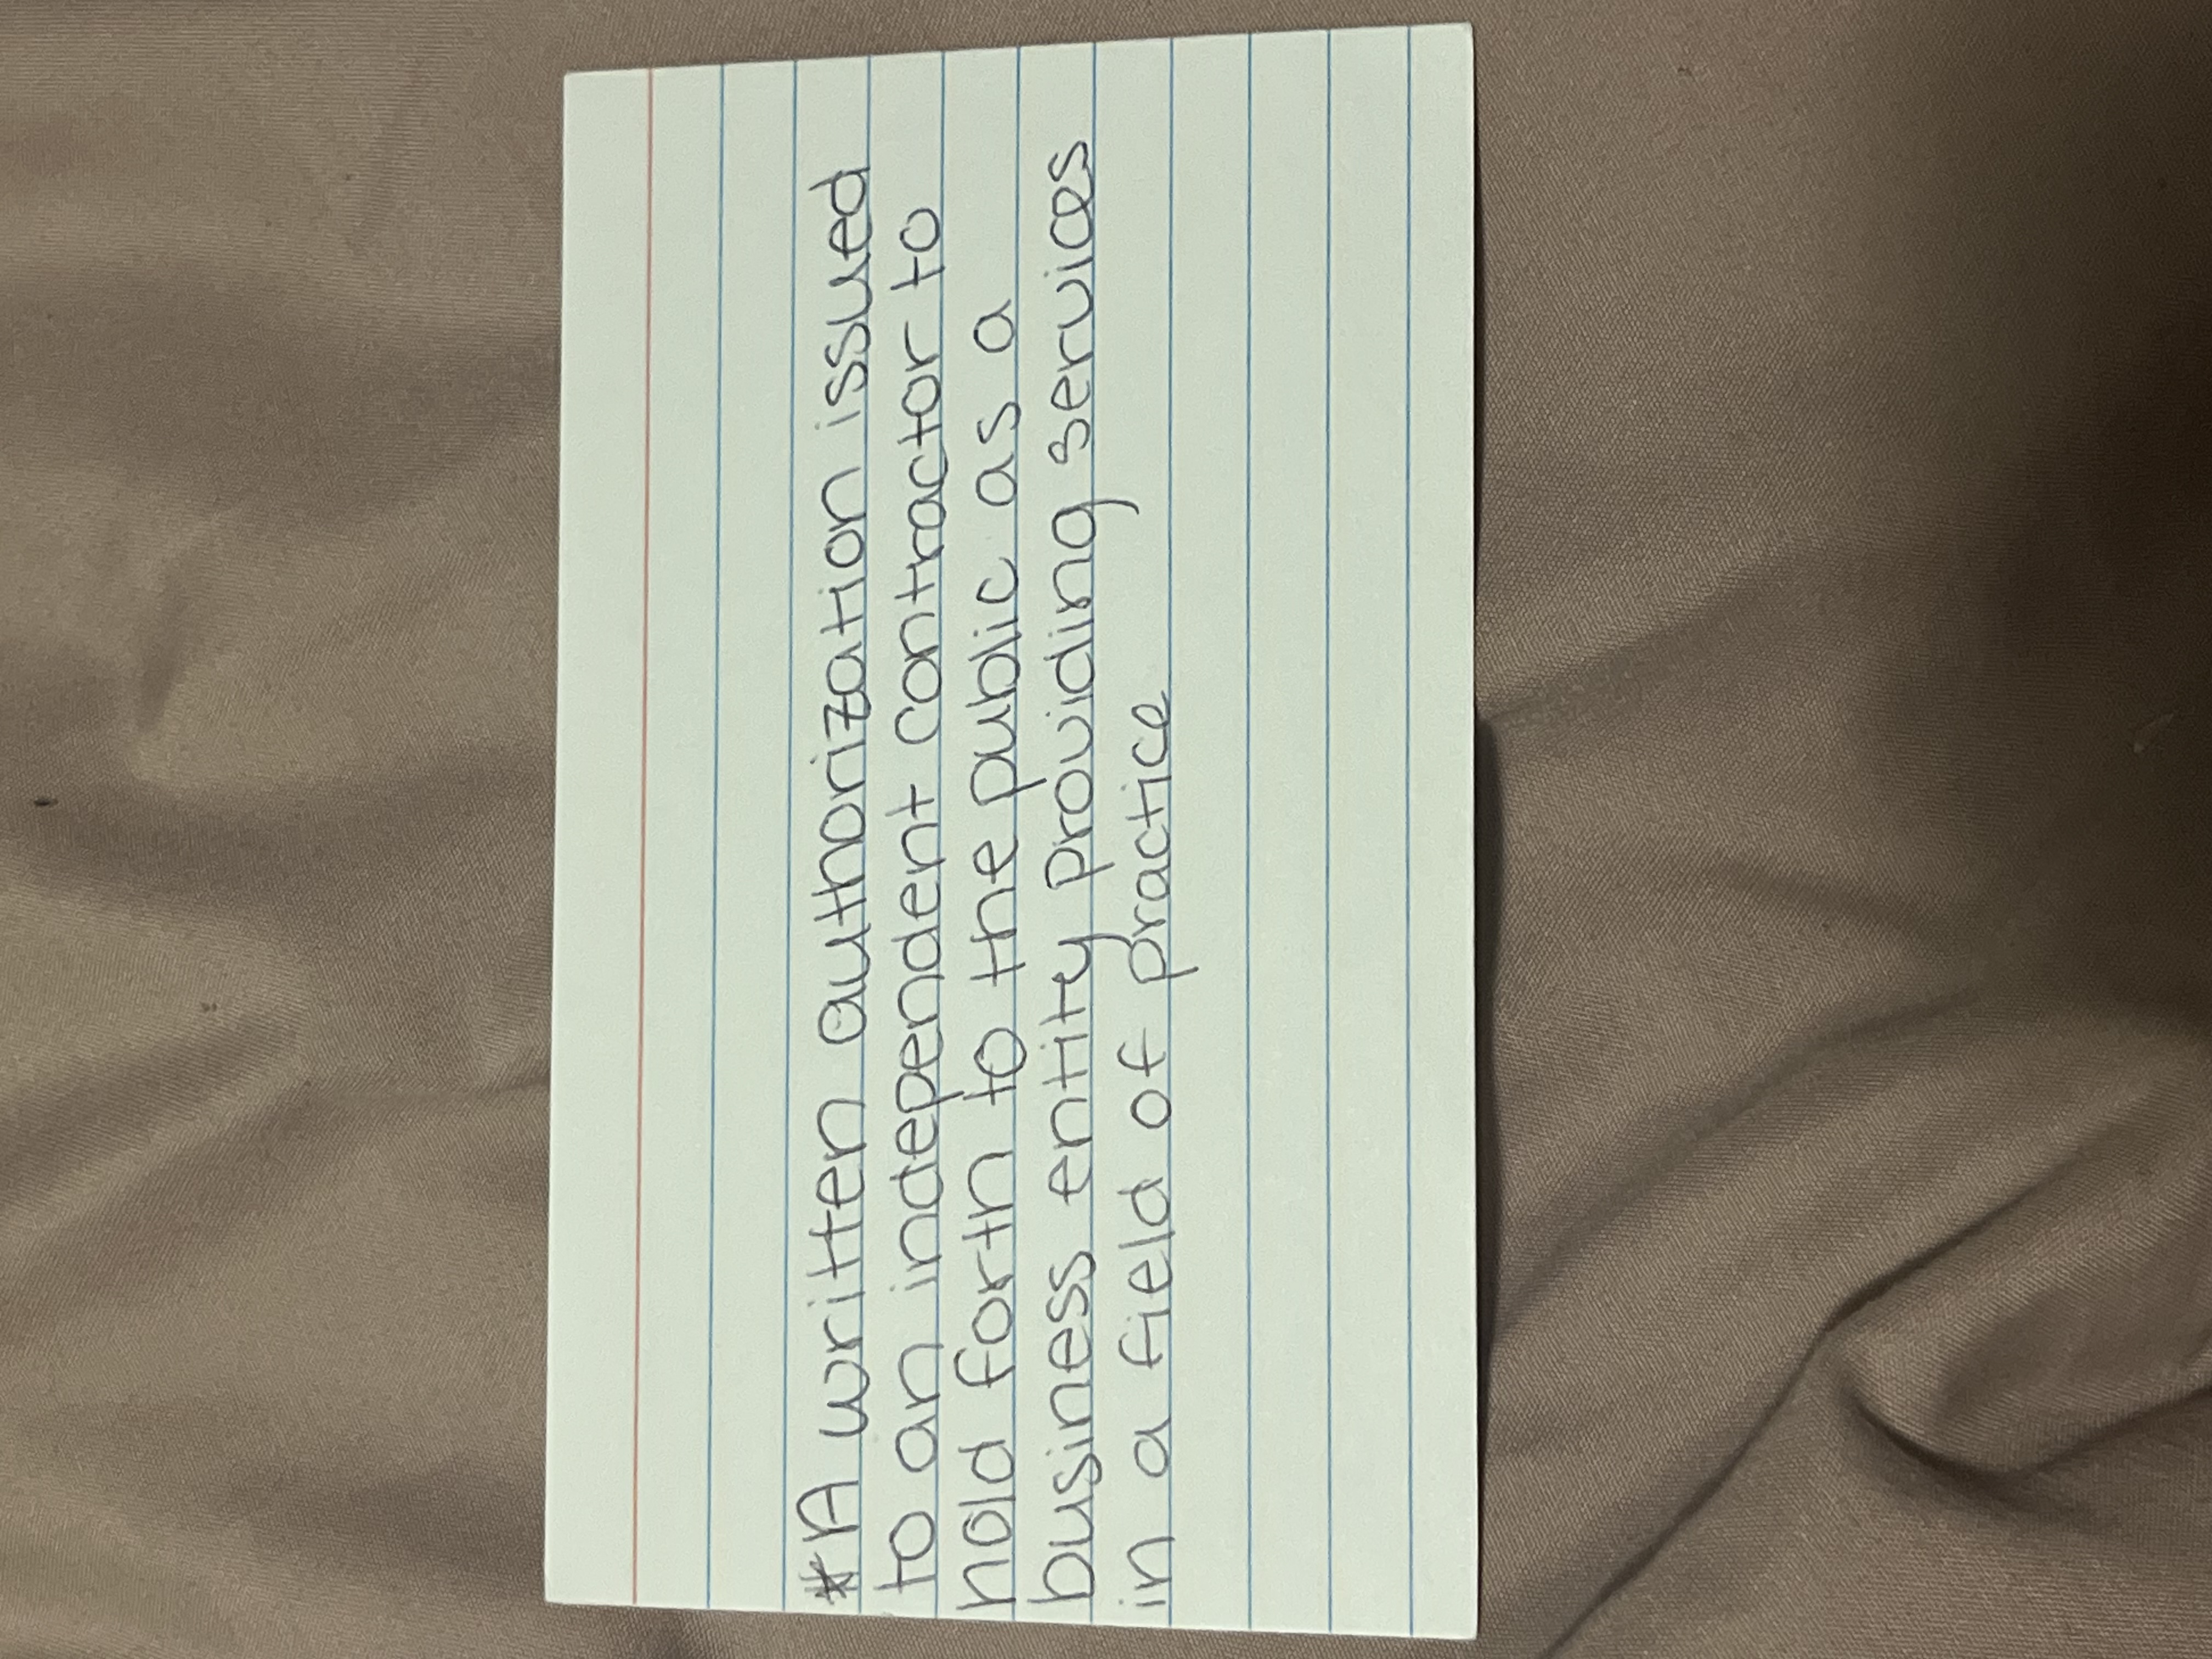 *A written authorization issued
to an independent contractor to
hold forth to the public as a
business entity providing services
in a field of practice